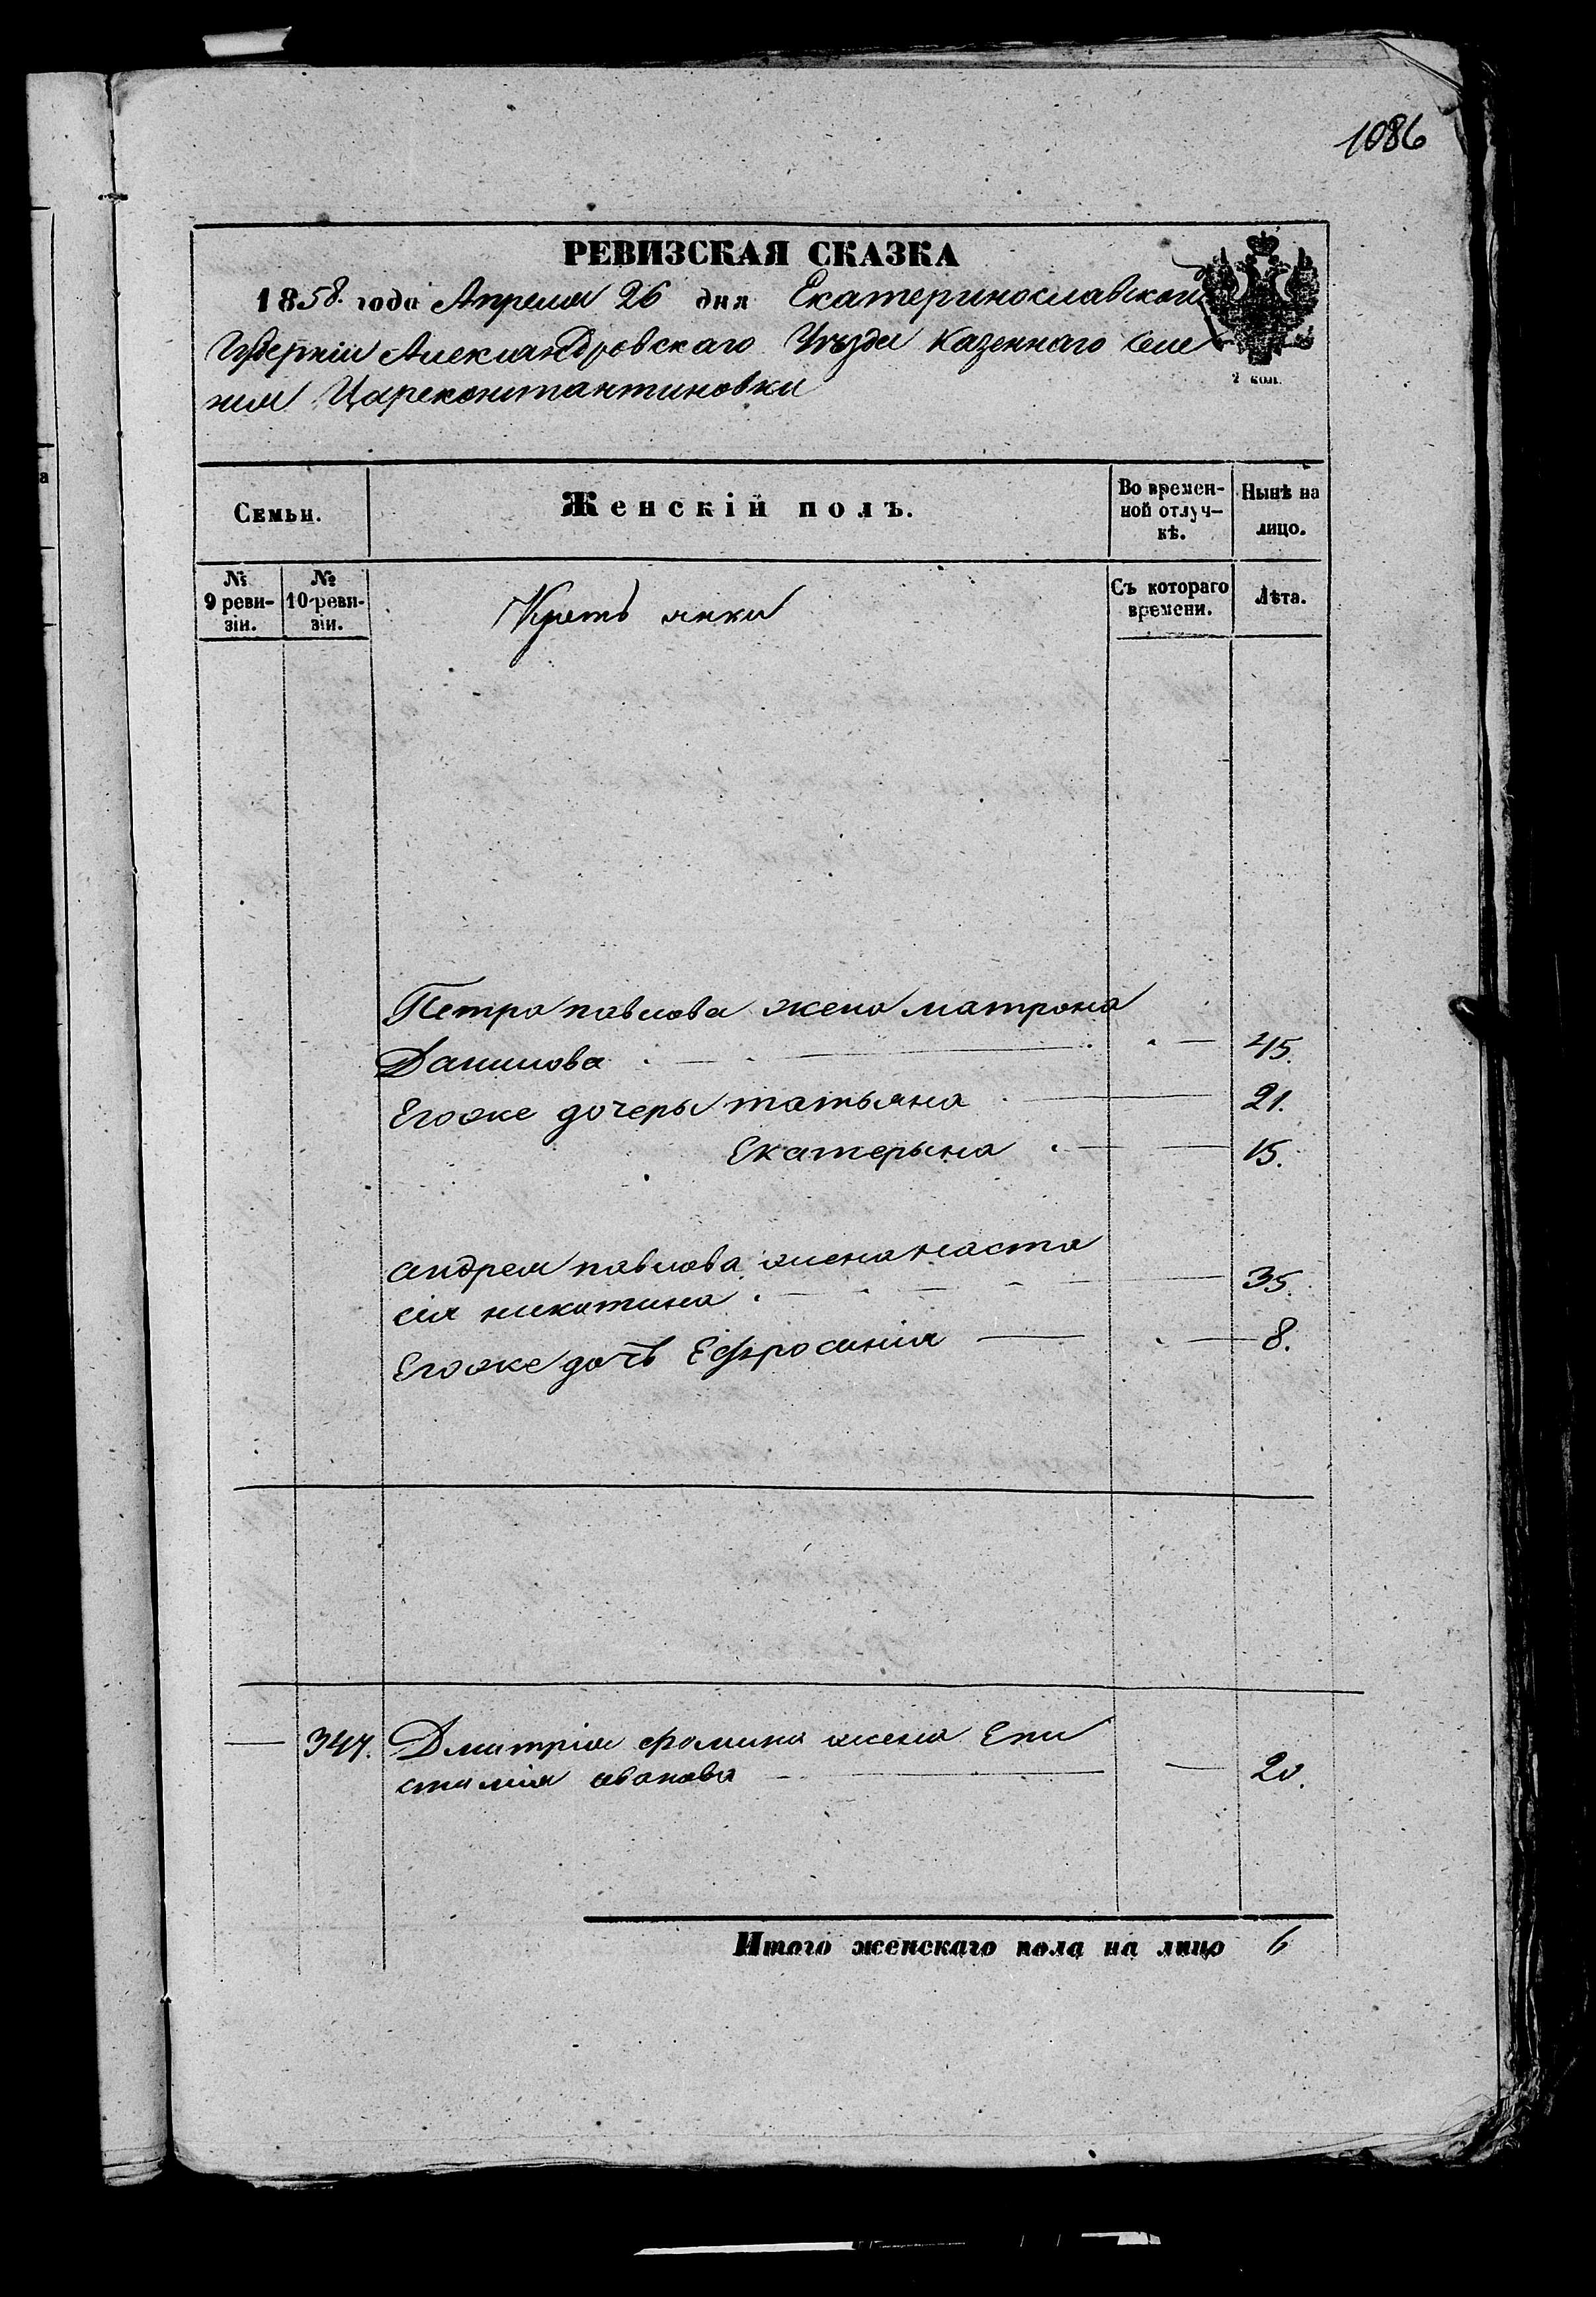 1086
РЕВИЗСКАЯ СКАЗКА
1858. года Апреля 26 дня Екатеринославской
Губерніи Александровскаго Уѣзда Казеннаго Селе
нія Цареконстантиновки
2 коп.
Семьи.
Женскій полъ.
Во времен-
ной отлуч-
кѣ.
Нынѣ на
лицо.
№
9 реви-
зіи.
№
10 реви-
зіи.
Кресть янки
Съ котораго
времени.
Лѣта.
Петра павлова жена матрона
Данилова 45.
Егоже дочеры татьяна 21.
Екатерына 15.
андрея павлова жена наста
сія никитина 35.
Егоже дочь Ефросинія 8.
347. Дмитрія фомина жена Епи
стимія иванова 20.
Итого женскаго пола на лицо 6